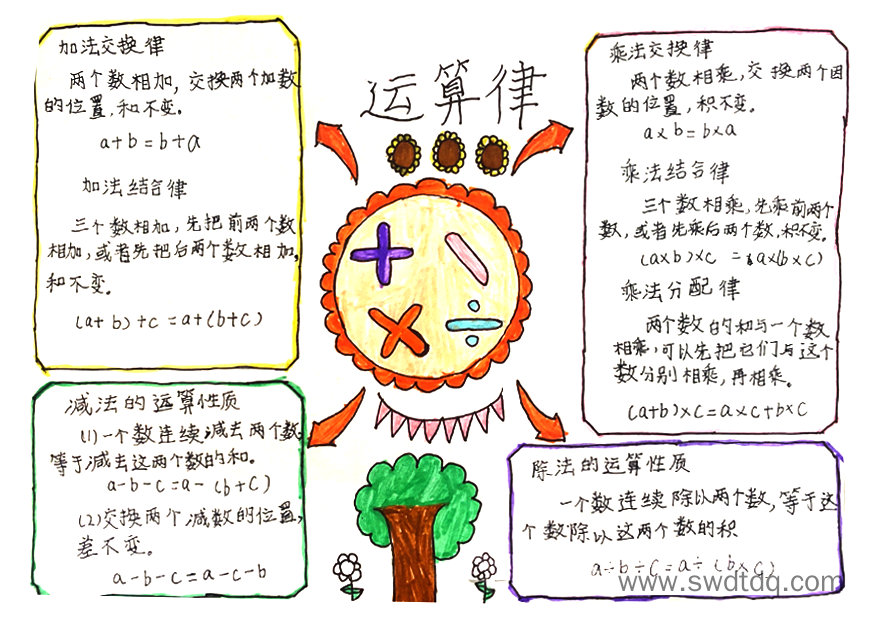 运算律
加法交换律
两个数相加,交换两个加数
的位置,和不变。
a+b=b+a
加法结合律
三个数相加,先把前两个数
相加,或者先把后两个数相加,
和不变。
(a+b)+c=a+(b+c)
减法的运算性质
(1)一个数连续减去两个数,
等于减去这两个数的和。
a-b-c=a-(b+c)
(2)交换两个减数的位置,
差不变。
a-b-c=a-c-b
乘法交换律
两个数相乘,交换两个因
数的位置,积不变。
a×b=b×a
乘法结合律
三个数相乘,先乘前两个
数,或者先乘后两个数,积不变。
(a×b)×c =a×(b×c)
乘法分配律
两个数的和与一个数
相乘,可以先把它们与这个
数分别相乘,再相乘。
(a+b)×c=a×c+b×c
除法的运算性质
一个数连续除以两个数,等于这
个数除以这两个数的积
a÷b÷c=a÷(b×c)
www.swdtdq.com